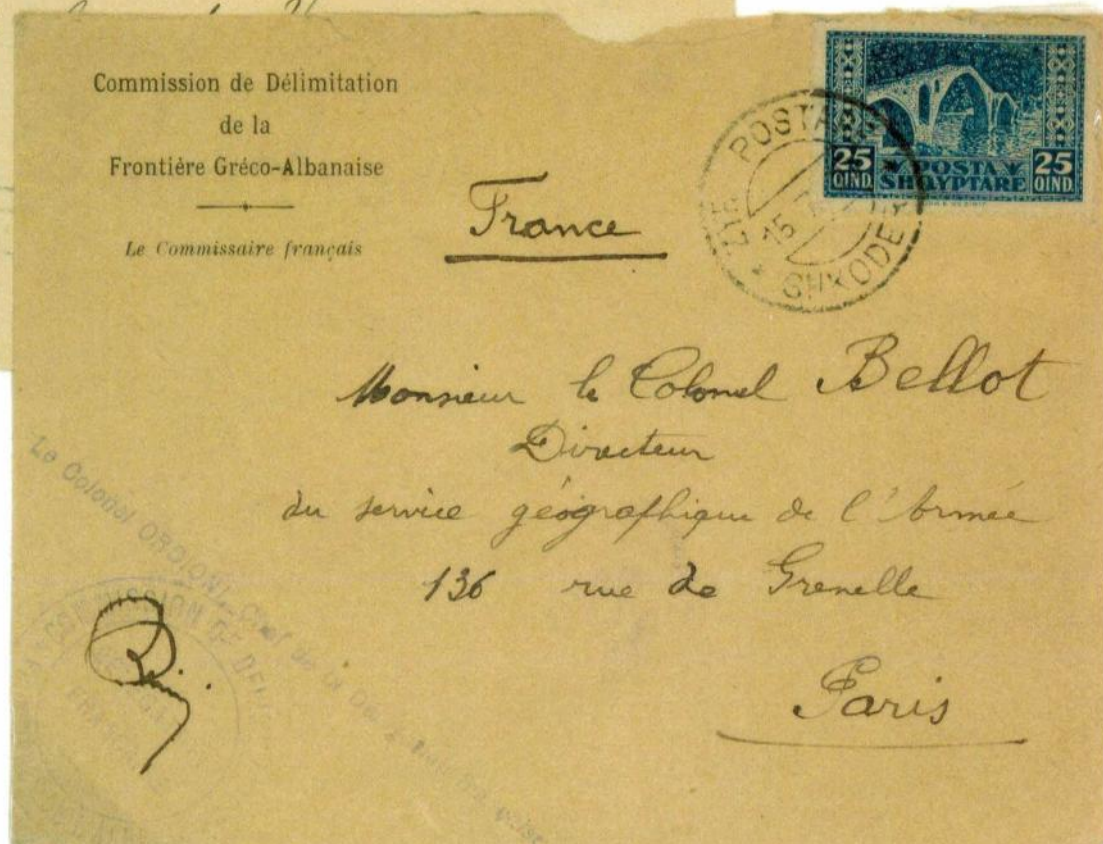 Commission de Délimitation
de la
Frontière Gréco-Albanaise
Le Commissaire français
France
25 QIND. POSTA SHQYPTARE 25 QIND.
15
SHKODER
Monsieur le Colonel Bellot
Directeur
du service géographique de l'Armée
136 rue de Grenelle
Paris
Le Colonel ORDIONI, Chef de la